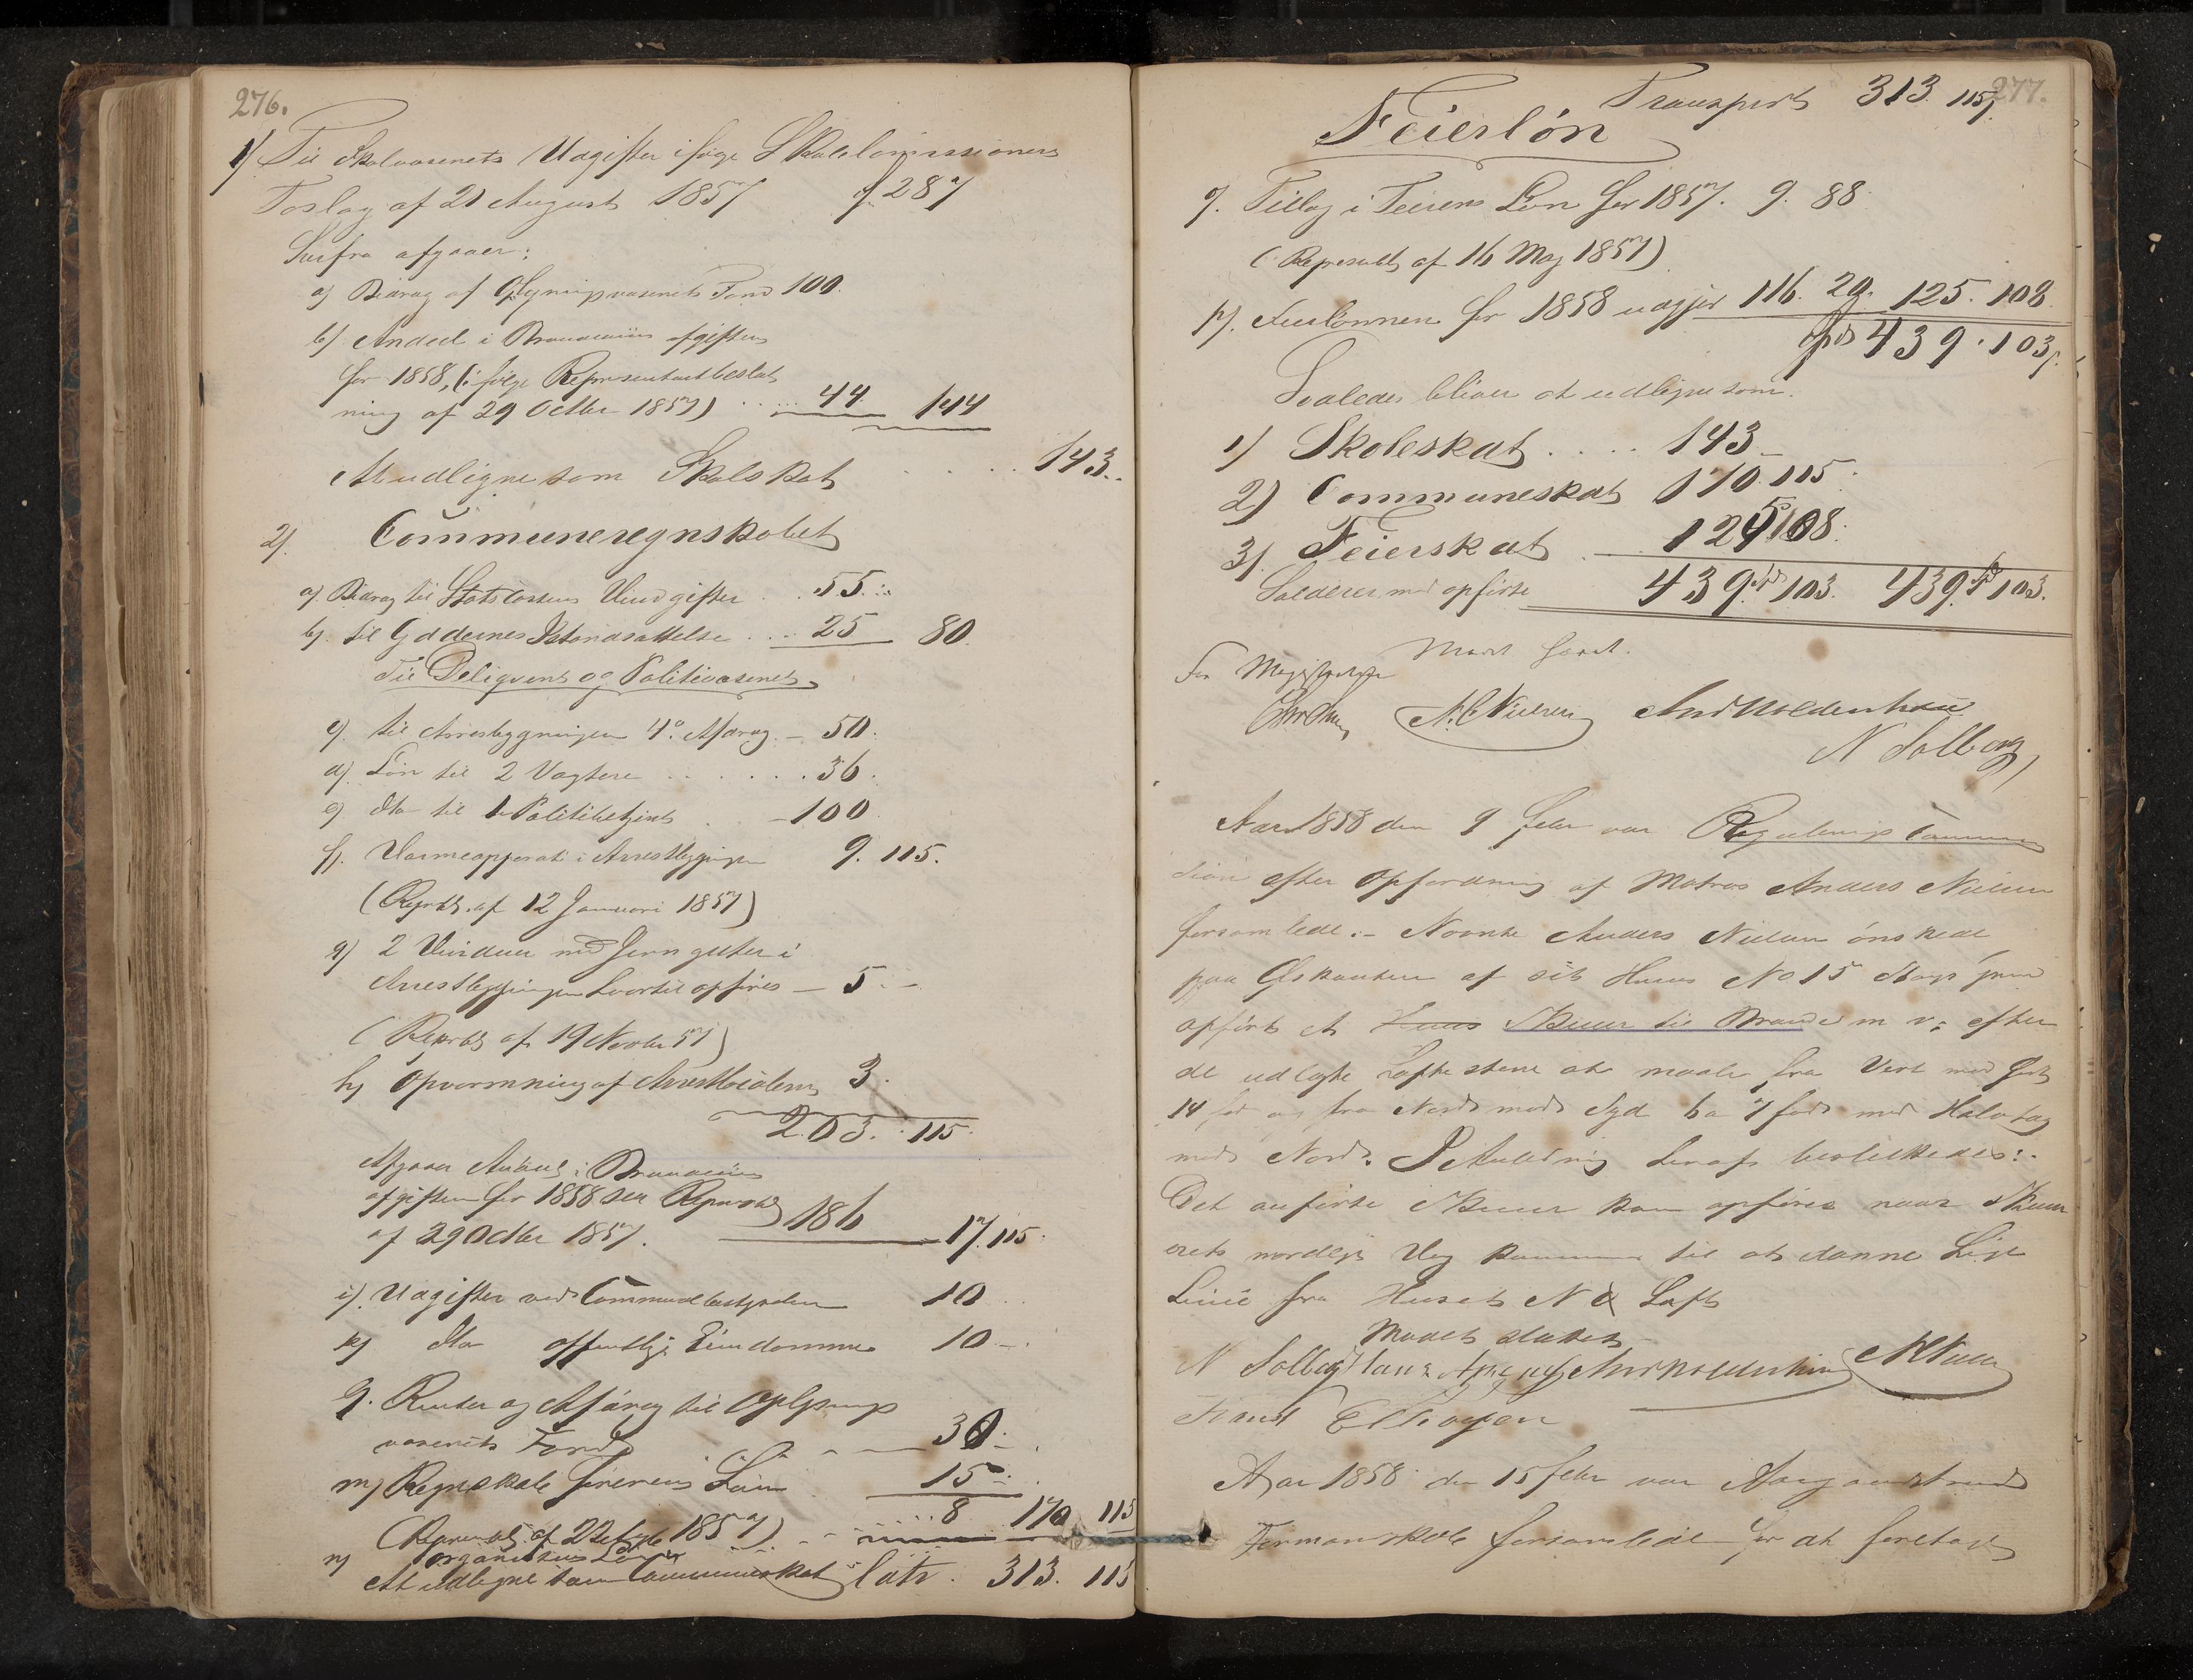 276.
1) Til Skolvæsenets Udgifter ifølge Skolekommissionens
Foslag af 21 August 1857 287
Herfra afgaaer:
a) Bidrag af Oplysningsvæsenets Fond 100.
b) Andeel i Brændeviins afgiften
for 1858, (ifølge Representantbeslut
ning af 29 Octbr 1857) .... 44 144
At udligne som Skoleskat .... 143..
2). Communeregnskabet
a). Bidrag til Statskassens Udgifter .. 55.
b). til Gadernes Istandsættelse ... 25 80.
Til Deliqvent og Politivæsenet
c). til Arrestbygningen 4º Afdrag. – 50.
d). Løn til 2 Vægtere ...... 36.
e) Do til 1 Politibetjent .. – 100
f). Varmeapparat i Arrestbygningen 9. 115.
(Reprbs. af 12 Januari 1857)
g) 2 Vinduer med Jerngitter i
Arrestbygningen hvortil opføres – 5. –
(Reprbs af 19 Novbr 57)
h) Opvarmning af Arrestlocalerne 3.
203. 115.
Afgaar Andeel i Brændeviins
afgiften for 1858 Reprbs
af 29 Octbr 1857. 186 17. 115.
i). Udgifter ved Communebestyrelsen 10
k) Do offentlige Eiendomme 10 –
l. Renter og Afdrag til Oplysnings
væsenets Fond 30.
m) Regnskabs førerens Løn 15
(Represbs. af 22 1857) .. 8 170 115
n) Organistens Løn
At udligne som Communeskat latr. 313. 115
277.
Transport 313. 115
Feierløn
o. Tillæg i Feierens Løn for 1857. 9. 88.
(Represbs af 16 Maj 1857)
p). Feierlønnen for 1858 udgjør 116. 20. 125. 108.
439. 103.
Saaledes bliver at udligne som.
1) Skoleskat .... 143 –
2) Communeskat 170. 115.
3). Feierskat 125 108.
Balderer med opførte 439. 103. 439. 103.
Mødet hævet.
For Magistraten
N. C. Nielsen And Moldenhau
N Solberg
Aar 1858 den 9 Febr var Regulerings Commis
sion efter Opfordring af Matros Anders Nielsen
forsamlede. – Nævnte Anders Nielsen ønskede
paa Østkanten af sit Huus No 15
opført et Huus Skuur til Brænde m v: efter
de udlagte at maale fra Vest mod Øst
14 fod og fra Nord mod Syd 6 a 7 fod med Halvtag
mod Nord. I Anledning heraf besluttedes:.
Det anførte Skuur kan opføres naar Skuu
rets nordlige Væg kommer til at danne Lige
Linie fra Huset N
Mødet sluttet
N Solberg
Knud Ellingsen
Aar 1858 den 15 Febr var
Formandskab forsamlede for at foretage